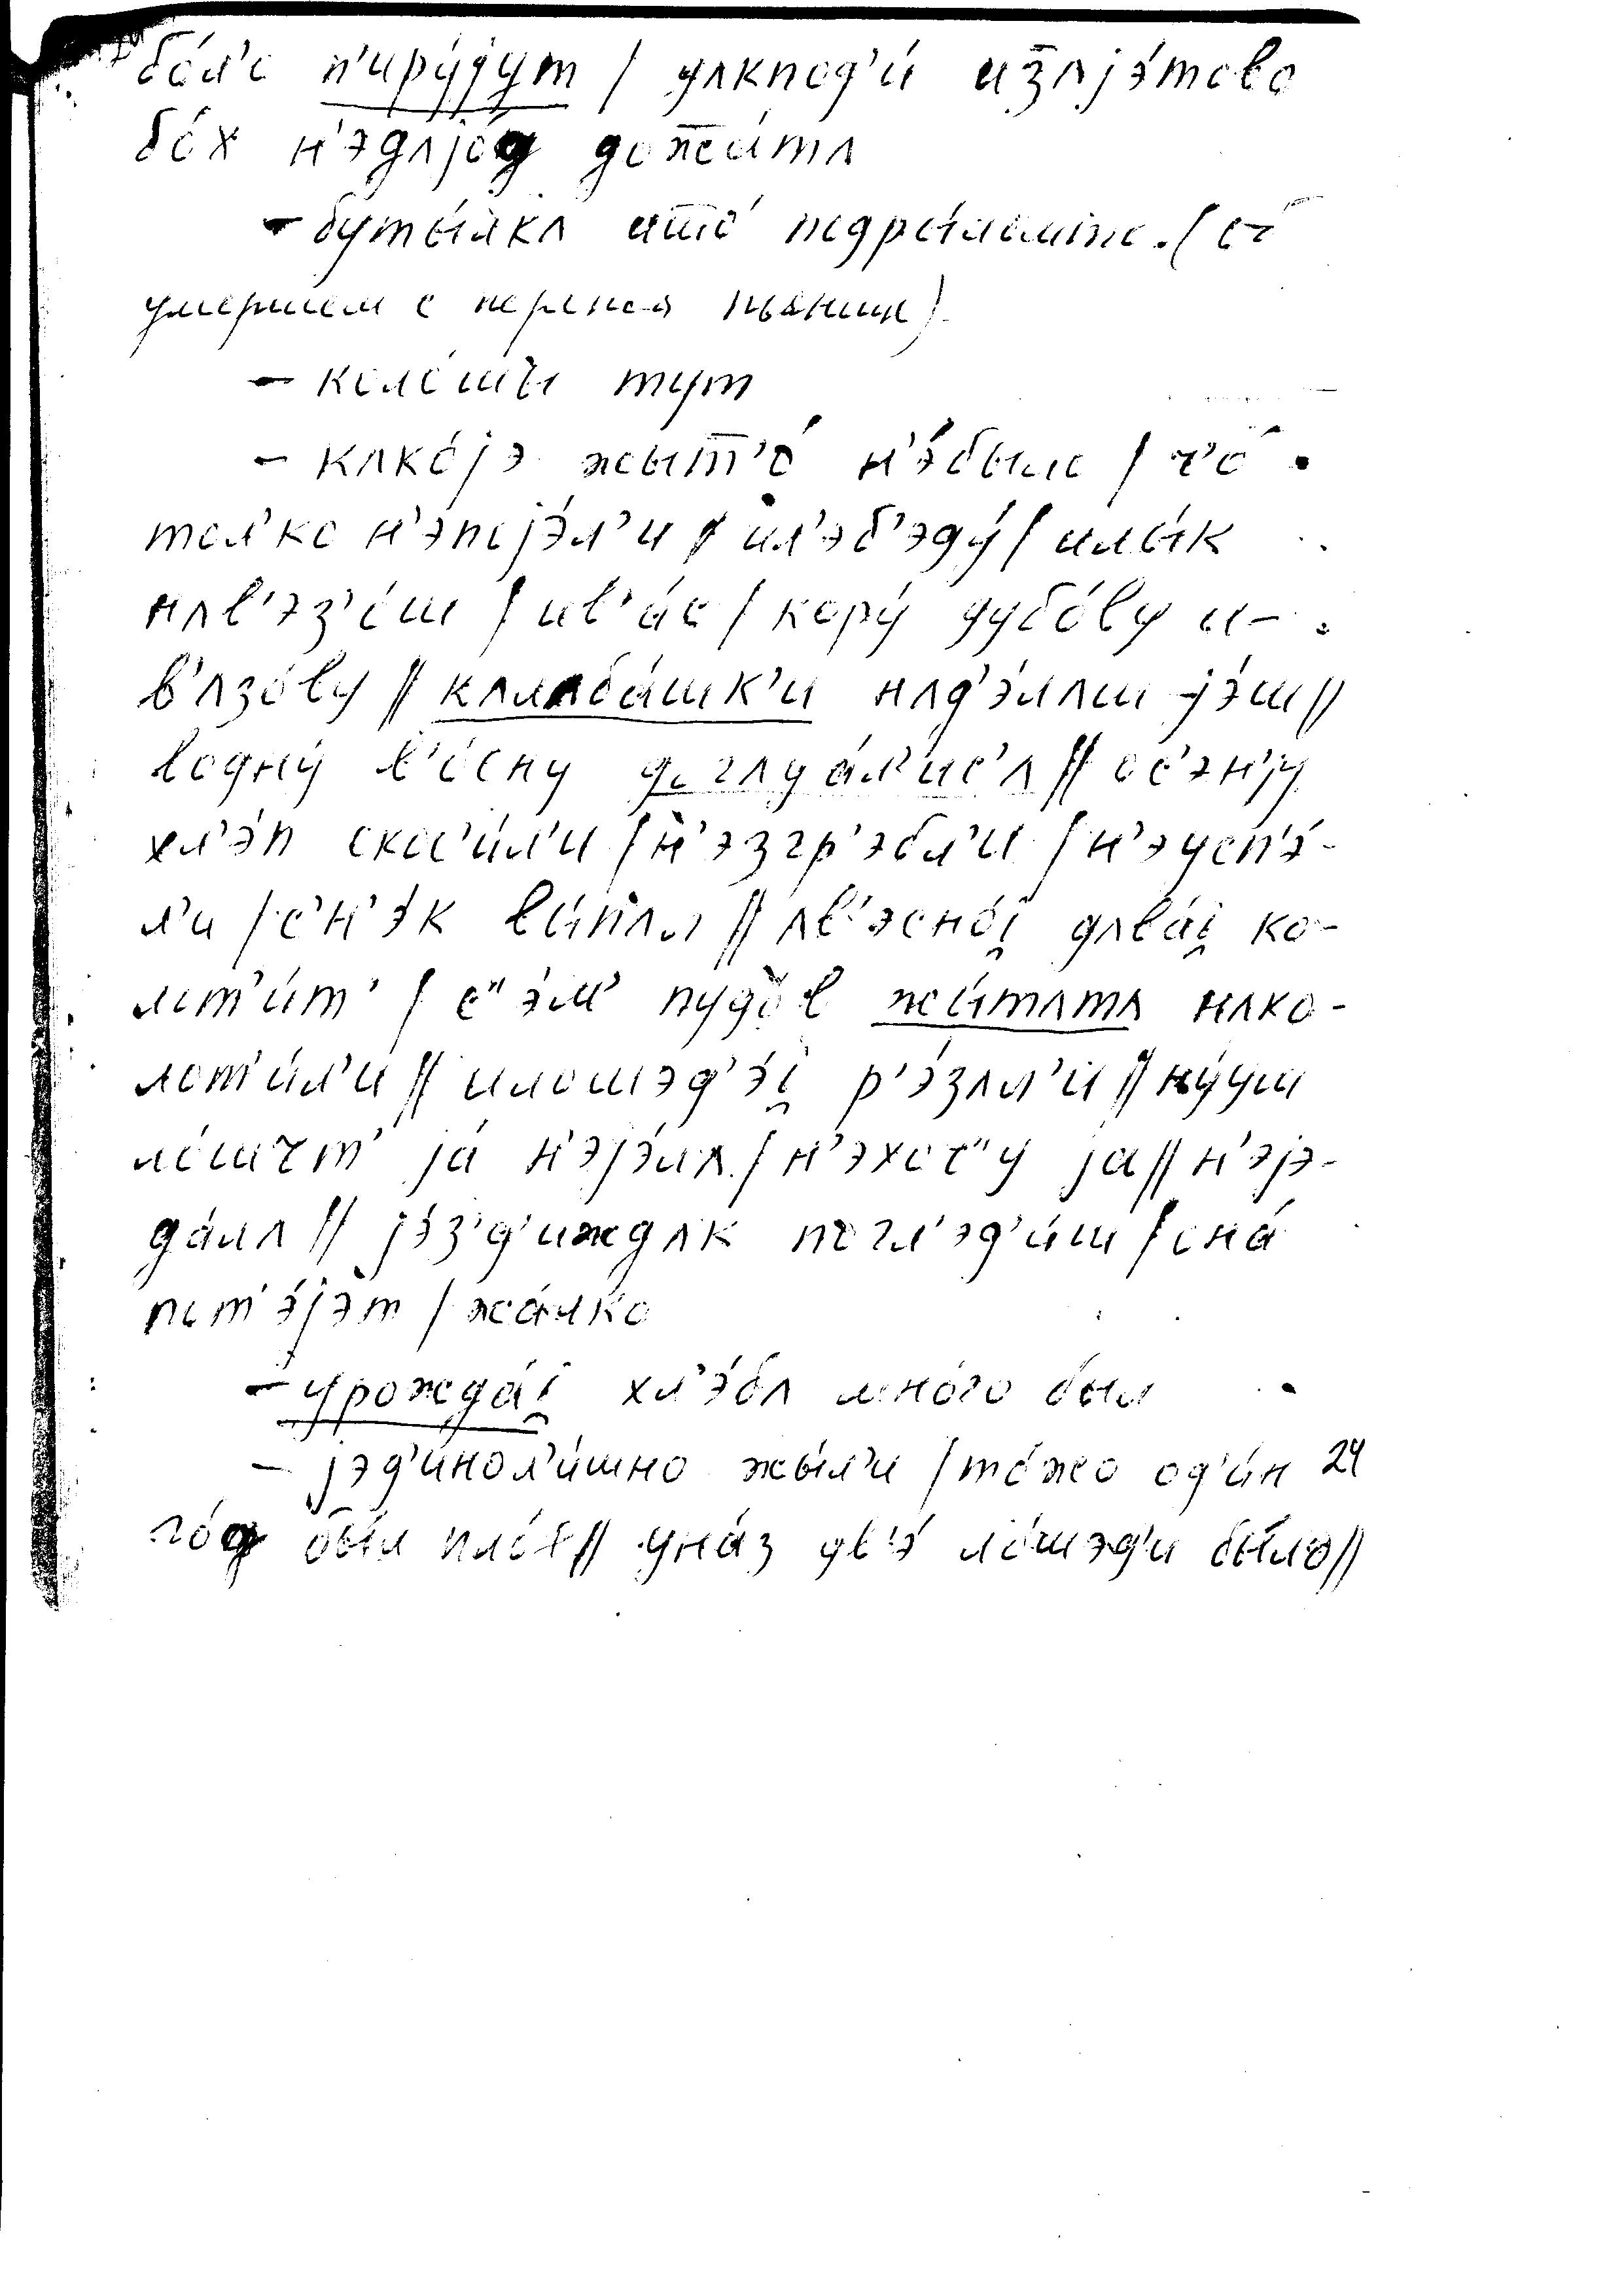 бо́л'о п'иру́јут / улкпод'и́ изʌјэ́тово
бо́х н'эдʌјо́д дожа́тʌ
– буты́лкʌ што́ подры́ломто. (об
умершем с перепоя пьянице)
– коло́шъи тут
– кʌко́јэ жыт'о́ н'э́было / ч'о́
тол'ко н'эпојэ́л'и / ил'эб'эду́ / илы́к
нʌв'эз'о́ш / ив'а́с / кору́ дубо́ву и–
в'ʌзо́ву // кʌлʌба́шк'и нʌд'э́лʌш јэ́ш //
водну́ в'о́сну доглуа́л'ис'ʌ // ос'эн'јy
хл'э́п скос'и́л'и / н'эзгр'эбл'и́ / н'эусп'э́-
л'и / с'н'э́к вы́пʌл // ʌв'эсно́і̯ дʌва́і̯ ко-
лот'и́т' / с'э́м' пудо́в жы́тʌтʌ нʌко-
лот'и́л'и // илошэд'э́і̯ р'э́зʌл'и // ну́уш
ло́шът' ја́ н'эјэ́лʌ / н'эхоч'у ја // н'эјэ-
да́лʌ // јэ́з'д'иждʌк погл'эд'и́ш / она́
пот'э́јэт / жа́лко
– урожда́і̯ хл'э́бʌ мно́го бы́л
– јэд'инол'и́шно жы́л'и / то́жо од'и́н 24
го́д бы́л пло́х // уна́з дв'э́ ло́шэд'и бы́ло //